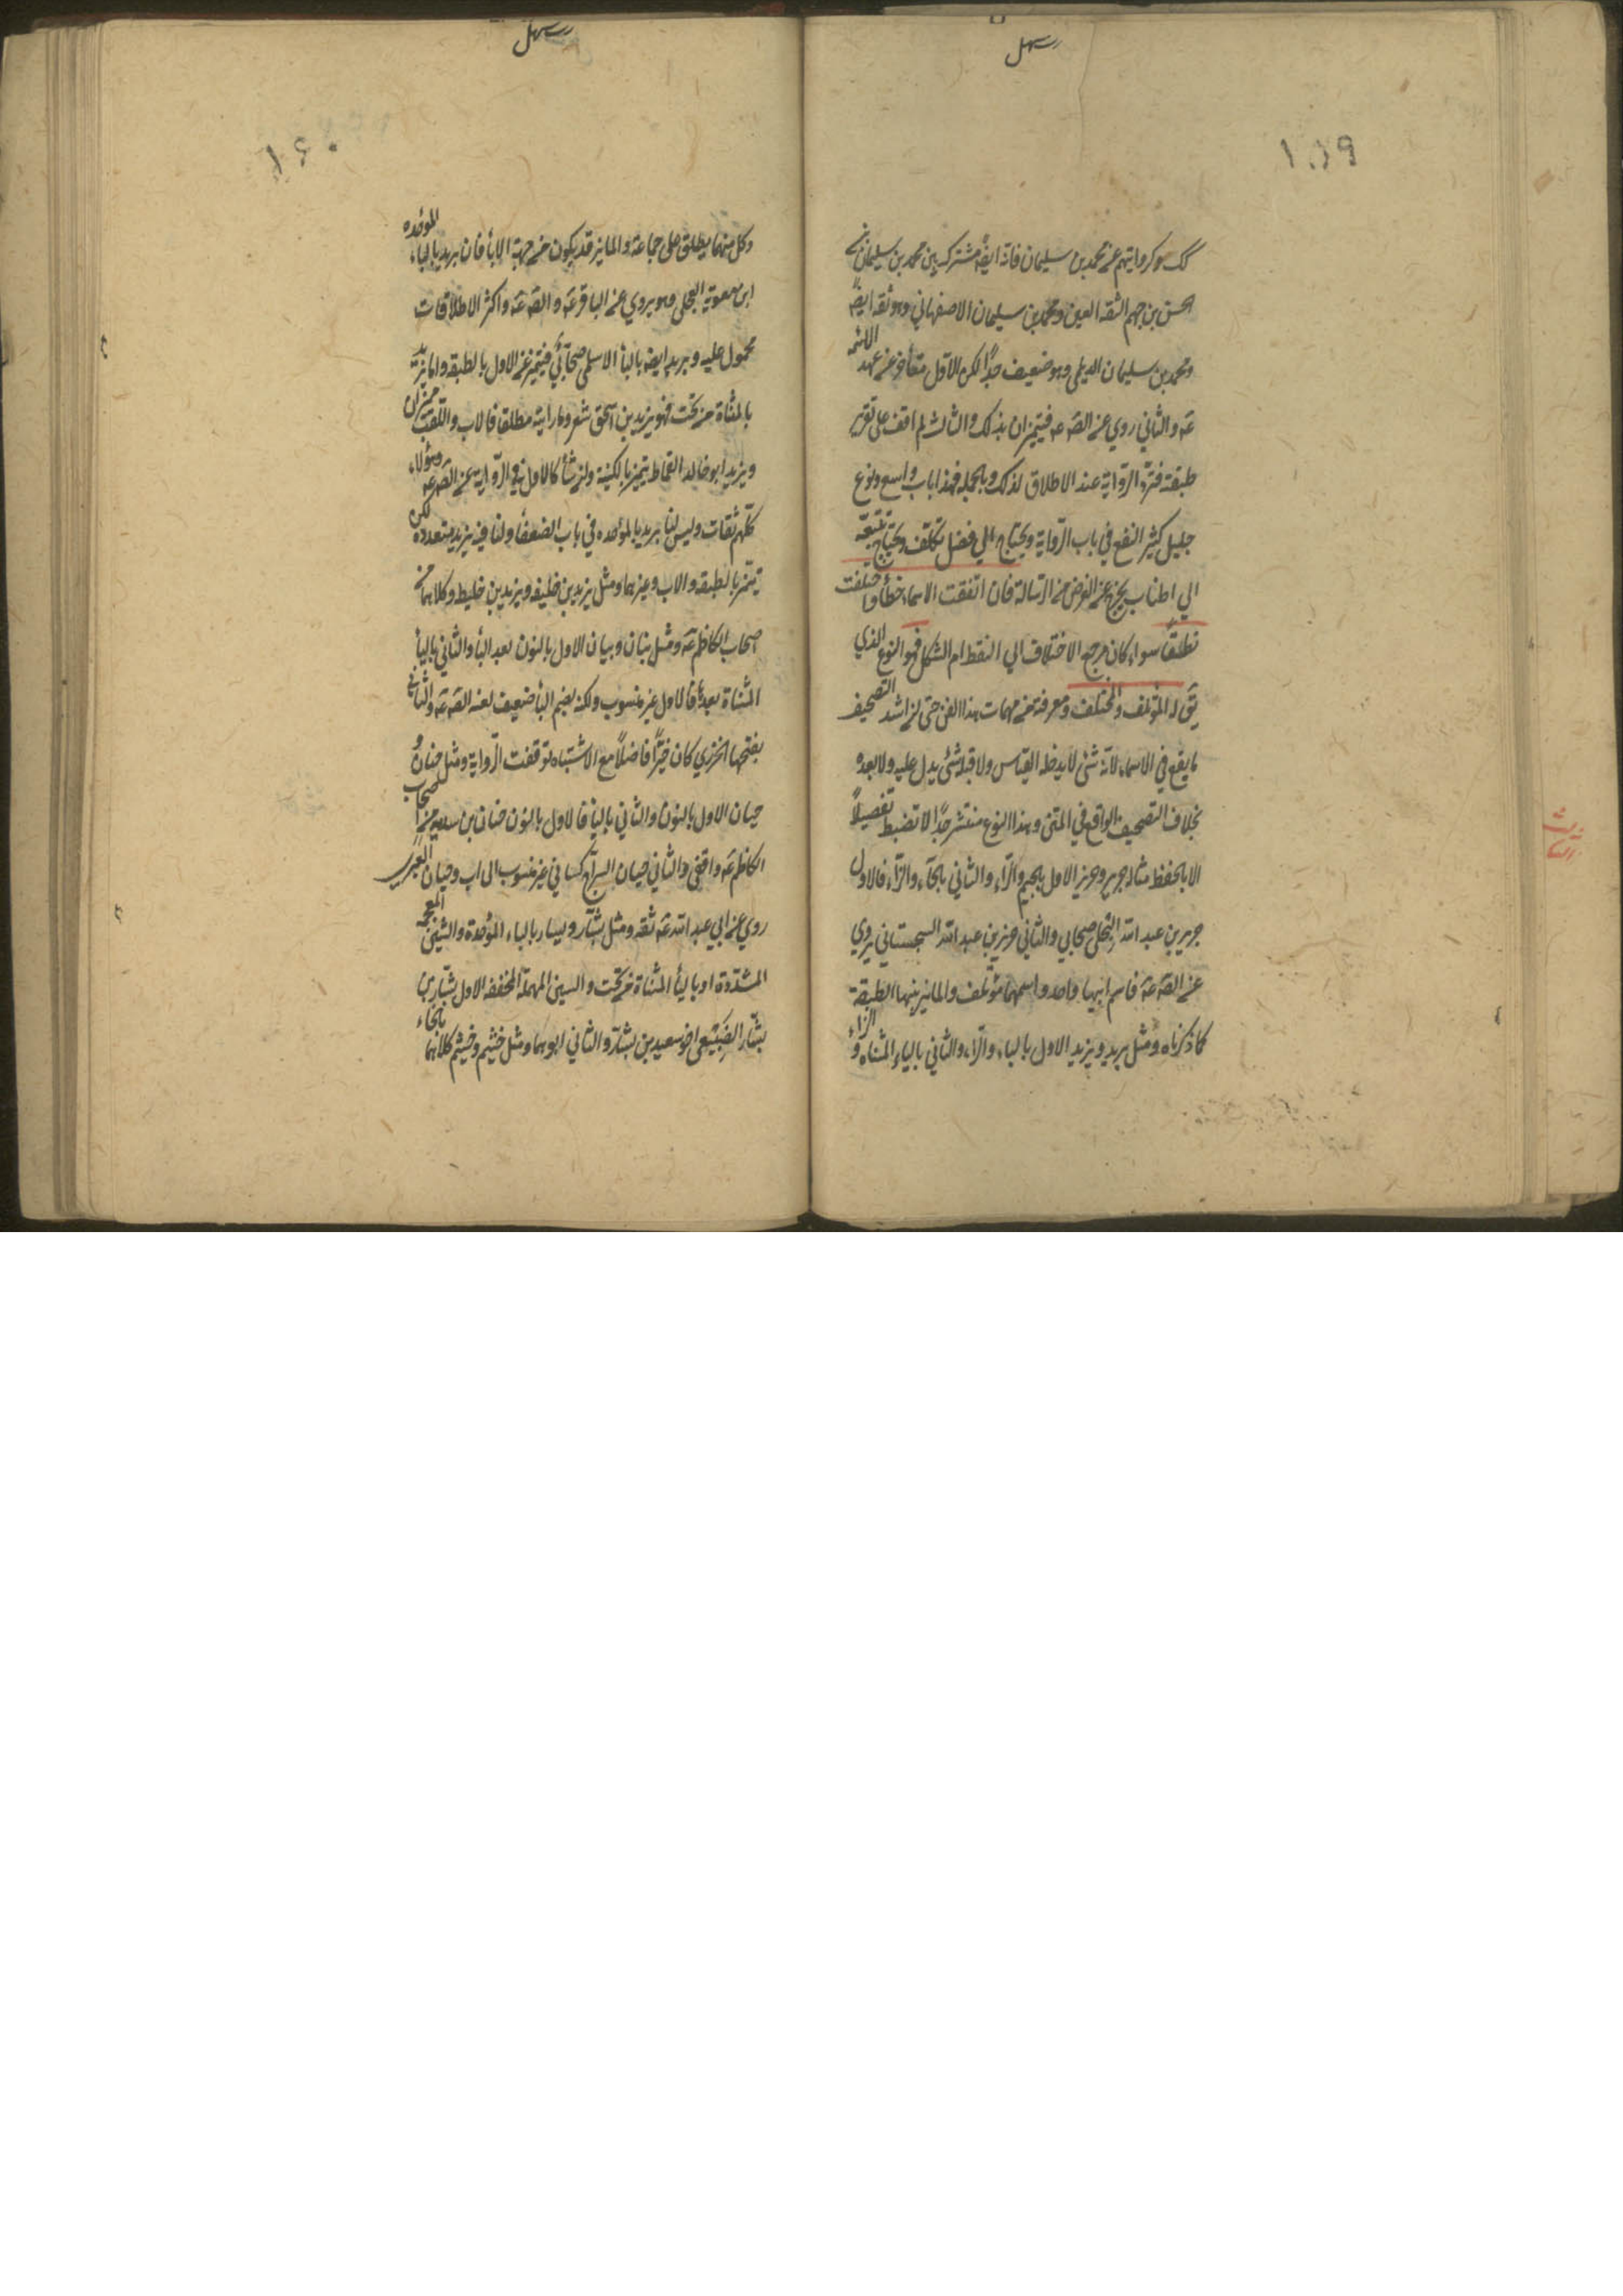 سهل
١٥٩
كك وكروايتهم عن محمد بن سليمان فانه ايضا مشترك بين محمد بن سليمان بن
الحسن بن جهم الثقه العين ومحمد بن سليمان الاصفهاني وهو ثقه ايضا
ومحمد بن سليمان الديلمي وهو ضعيف جدًا لكن الاول متأخر عن عهد الائمه
عَه والثاني روي عن الصّ عه فيتميزان بذلك والثالث لم اقف على تقرير
طبقته فتردّ الرّواية عند الاطلاق لذلك وبالجمله فهذا باب واسع ونوع
جليل كثير النفع في باب الرّواية ويحتاج الي فضل تكلّف ويحتاج تتبعّه
الي اطناب يخرج عن الغرض من الرّسالة فان اتفقت الاسماء خطأ واختلفت
نطلقًا سواء كان مرجع الاختلاف الي النقط ام الشكل فهو النوع الذي
يقَ له المؤتلف والمختلف ومعرفته من مهمات هذا الفن حتى ان اشد التصحيف
ما يقع في الاسماء لانّه شئ لا يدخله القياس ولا قبله شئ يدل عليه ولا بعده
بخلاف التصحيف الواقع في المتن وهذا النوع منتشر جدًا لا تضبط تفصيلًا
الا بالحفظ مثاله جرير وحريز الاول بالجيم والرّاء والثاني بالحاء والزاء فالاول
جرير بن عبد الله البجلي صحابي والثاني حريز بن عبد الله السجستاني يروي
عن الصّ عَه فاسم ابيهما واحد واسمهما مؤتلف والمايز بينهما الطبقة
كما ذكرناه ومثل بريد ويزيد الاول بالباء والرّاء والثاني بالياء المثناه والزاء
سهل
١٦٠
وكل منهما يطلق على جماعة والمايز قد يكون من جهة الاباء فان بريد بالباء الموحّده
ابن معوية العجلي وهو يروي عن الباقر عَه والصّ عَه واكثر الاطلاقات
محمول عليه وبريد ايضا بالباء الاسلمي صحابّي فيتميز عن الاول بالطبقه واما يزيد
بالمثناة من تحت فهو يزيد بن اسحق شعر وما رايته مطلقا فالاب واللقب مميزان
ويزيد ابو خالد القماط يتميز بالكنية وان شأ كالاول في الرّواية عن الصّ عه وهؤلاء
كلّهم ثقات وليس لنا بريد بالموحده في باب الضعفاء ولنا فيه يزيد متعدده لكن
تتميّز بالطبقه والاب وغيرهما ومثل يزيد بن خليفه ويزيد بن خليط وكلاهما من
اصحاب الكاظم عَه ومثل بنان وبيان الاول بالنون بعد الباء والثاني بالياء
المثناة بعدها فالاول غير منسوب ولكنه بضم الباء ضعيف لعنه الصّ عَه والثاني
بفتحها الجزري كان خيّرًا فاضلًا مع الاشتباه توقفت الرّواية ومثل حنان و
حيان الاول بالنون والثاني بالياء فالاول بالنون حنان بن سدير من اصحاب
الكاظم عَه واقفي والثاني حيان السراج كيساني غير منسوب الى اب وحيان العنزي
روي عن ابي عبد الله عَه ثقه ومثل بشّار ويسار بالباء الموحّدة والشين المعجمه
المشدّدة او بالياء المثناة من تحت والسين المهملة المخففه الاول بشّار بن
بشّار الضبيعي اخو سعيد بن بشار والثاني ابوهما ومثل خثيم وخيثم كلاهما بالخاء